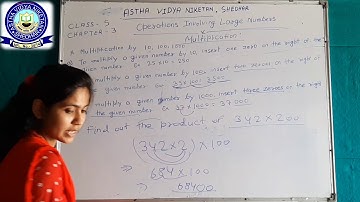 ASTHA VIDYA NIKETAN, SHEOHAR
CLASS- 5
CHAPTER- 3
Operations Involving Large Numbers
Multiplication
Multiplication by 10, 100, 1000
To multiply a given number by 10, insert one zero on the right of the
given number. Ex 25 × 10 = 250
multiply a given number by 100, insert two zeroes on the right
given number
multiply a given number by 1000, insert three zeroes on the right
the given number. Ex 37 × 1000 = 37000
Find out the product of 342 × 200
(342 × 2) × 100
684 × 100
68400